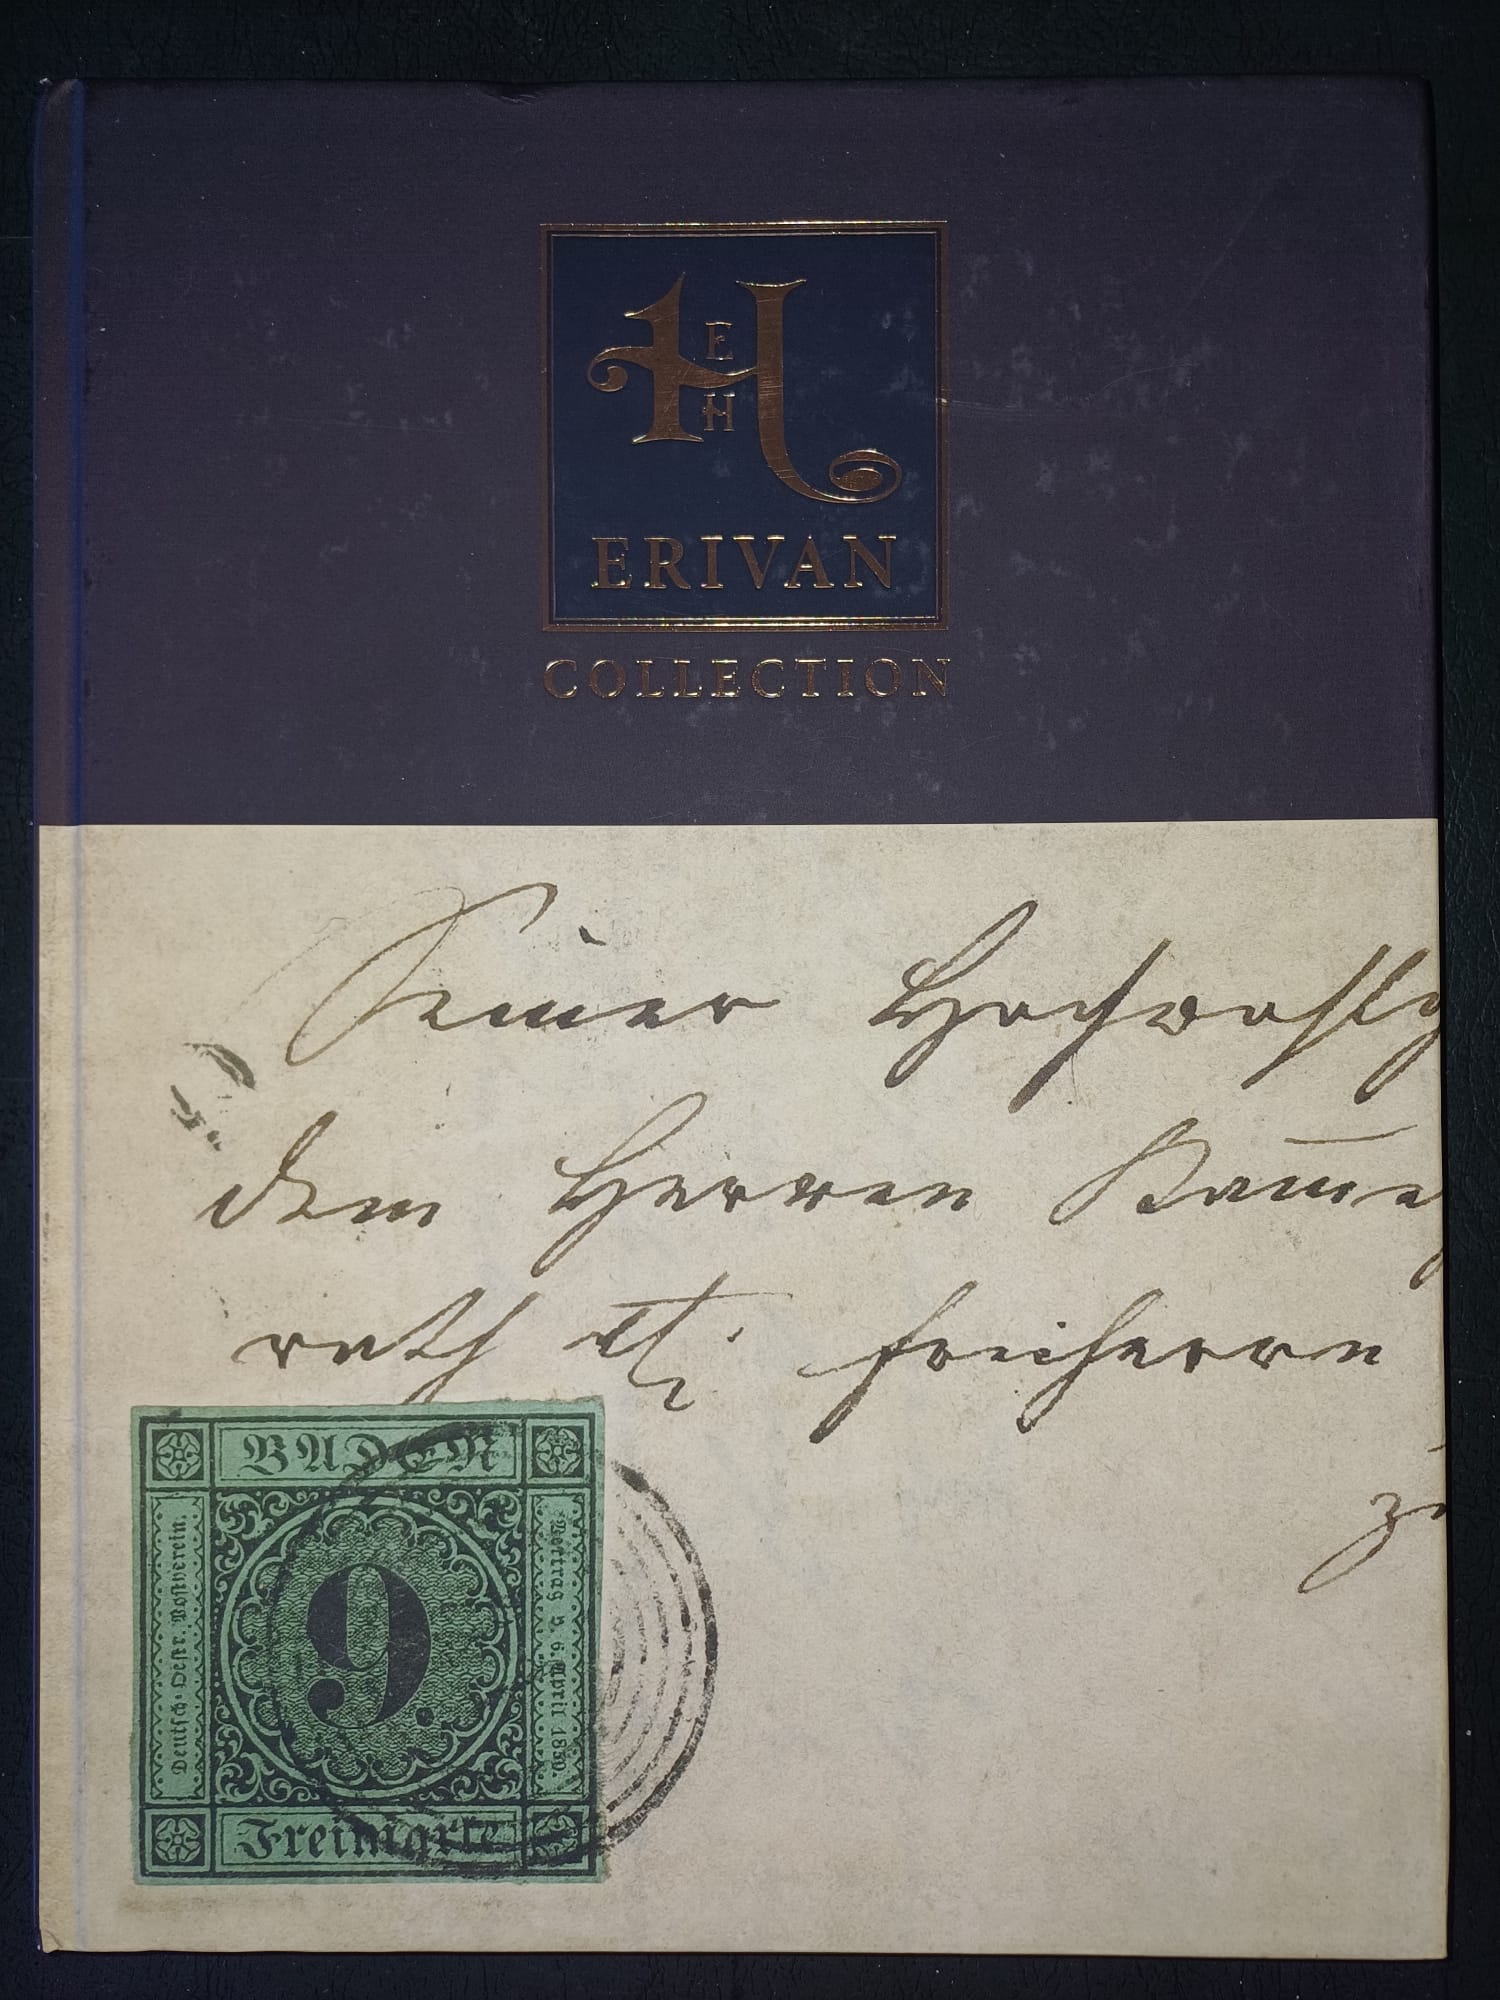 H
E
H
ERIVAN
COLLECTION
Seiner Hochwohlg
dem Herren Kamme
rath etc. Freiherrn
zu
BADEN
Deutsch-Oestr. Postverein.
9.
Vertrag v. 6. April 1850.
Freimarke